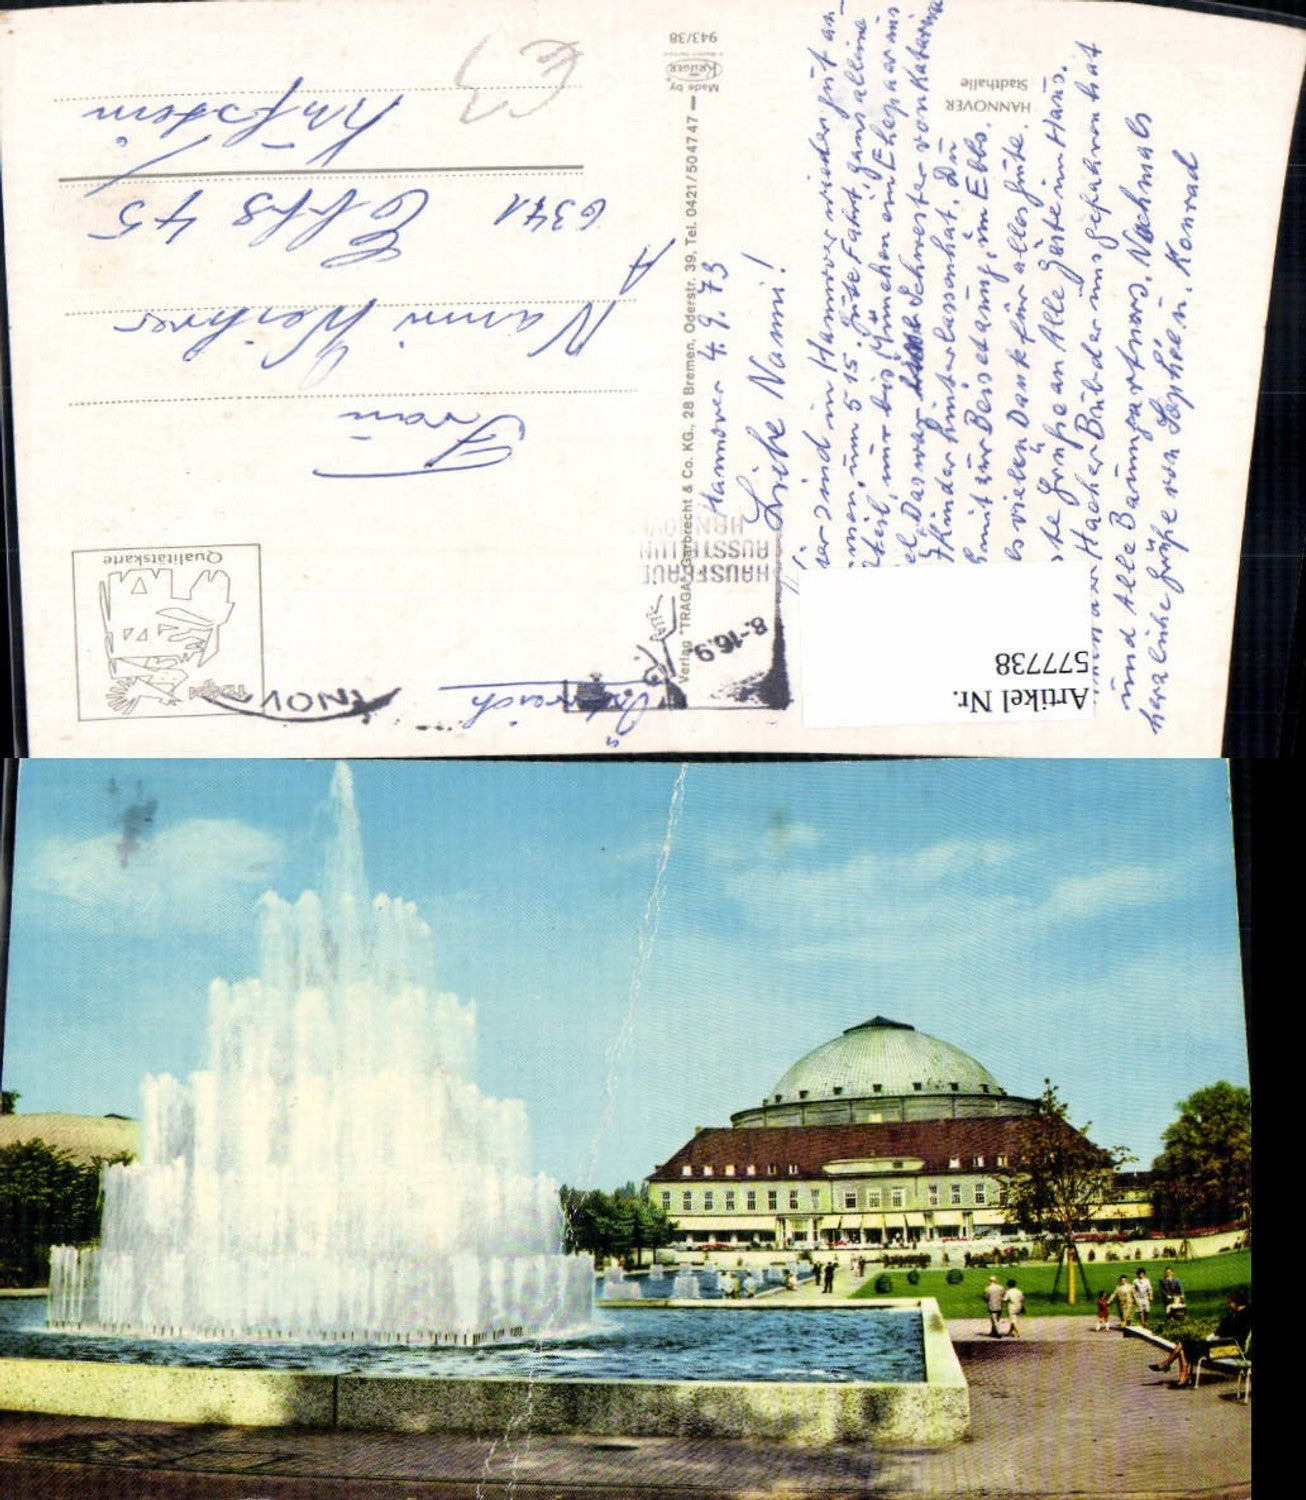 HANNOVER
Stadthalle
Hannover 4.9.73
Liebe Nanni!
Wir sind in Hannover wieder gut an-
um 5 15. Gute Fahrt, ganz alleine
nur bis München ein Ehepaar aus
Das war Schwester von Katarina
7 Kinder hinterlassen hat. Du
mit zur Beisetzung, in Ebbs.
vielen Dank für alles Gute.
Grüße an Alle Gäste im Haus.
Hacher Bub der uns gefahren hat
und Alle Baumgartners. Nochmals
herzliche Grüße von Sophie u. Konrad
Verlag "TRAGA" Garbrecht & Co. KG., 28 Bremen, Oderstr. 39, Tel. 0421/504747
Made by
KRÜGER
943/38
HAUSFRAU
AUSSTELLUN
HANNOV
8.-16.9
Traga
Qualitätskarte
Frau
Nanni
A
6341 Ebbs 45
Kufstein
Österreich
Artikel Nr.
577738